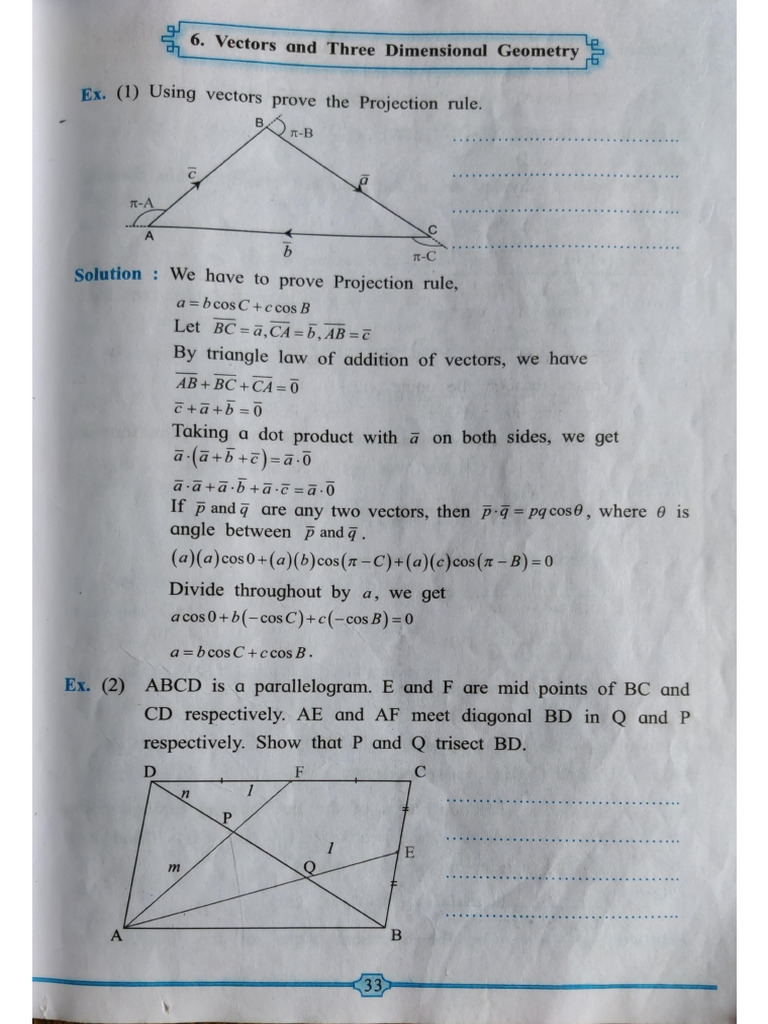 6. Vectors and Three Dimensional Geometry
Ex. (1) Using vectors prove the Projection rule.
B
π-B
c̅
a̅
π-A
A
C
b̅
π-C
Solution : We have to prove Projection rule,
a = b cos C + c cos B
Let B̅C̅ = a̅, C̅A̅ = b̅, A̅B̅ = c̅
By triangle law of addition of vectors, we have
A̅B̅ + B̅C̅ + C̅A̅ = 0̅
c̅ + a̅ + b̅ = 0̅
Taking a dot product with a̅ on both sides, we get
a̅ · (a̅ + b̅ + c̅) = a̅ · 0̅
a̅ · a̅ + a̅ · b̅ + a̅ · c̅ = a̅ · 0̅
If p̅ and q̅ are any two vectors, then p̅ · q̅ = pq cos θ, where θ is
angle between p̅ and q̅.
(a)(a)cos 0 + (a)(b)cos(π − C) + (a)(c)cos(π − B) = 0
Divide throughout by a, we get
a cos 0 + b(−cos C) + c(−cos B) = 0
a = b cos C + c cos B.
Ex. (2) ABCD is a parallelogram. E and F are mid points of BC and
CD respectively. AE and AF meet diagonal BD in Q and P
respectively. Show that P and Q trisect BD.
D
F
C
n
l
P
l
E
m
Q
A
B
33